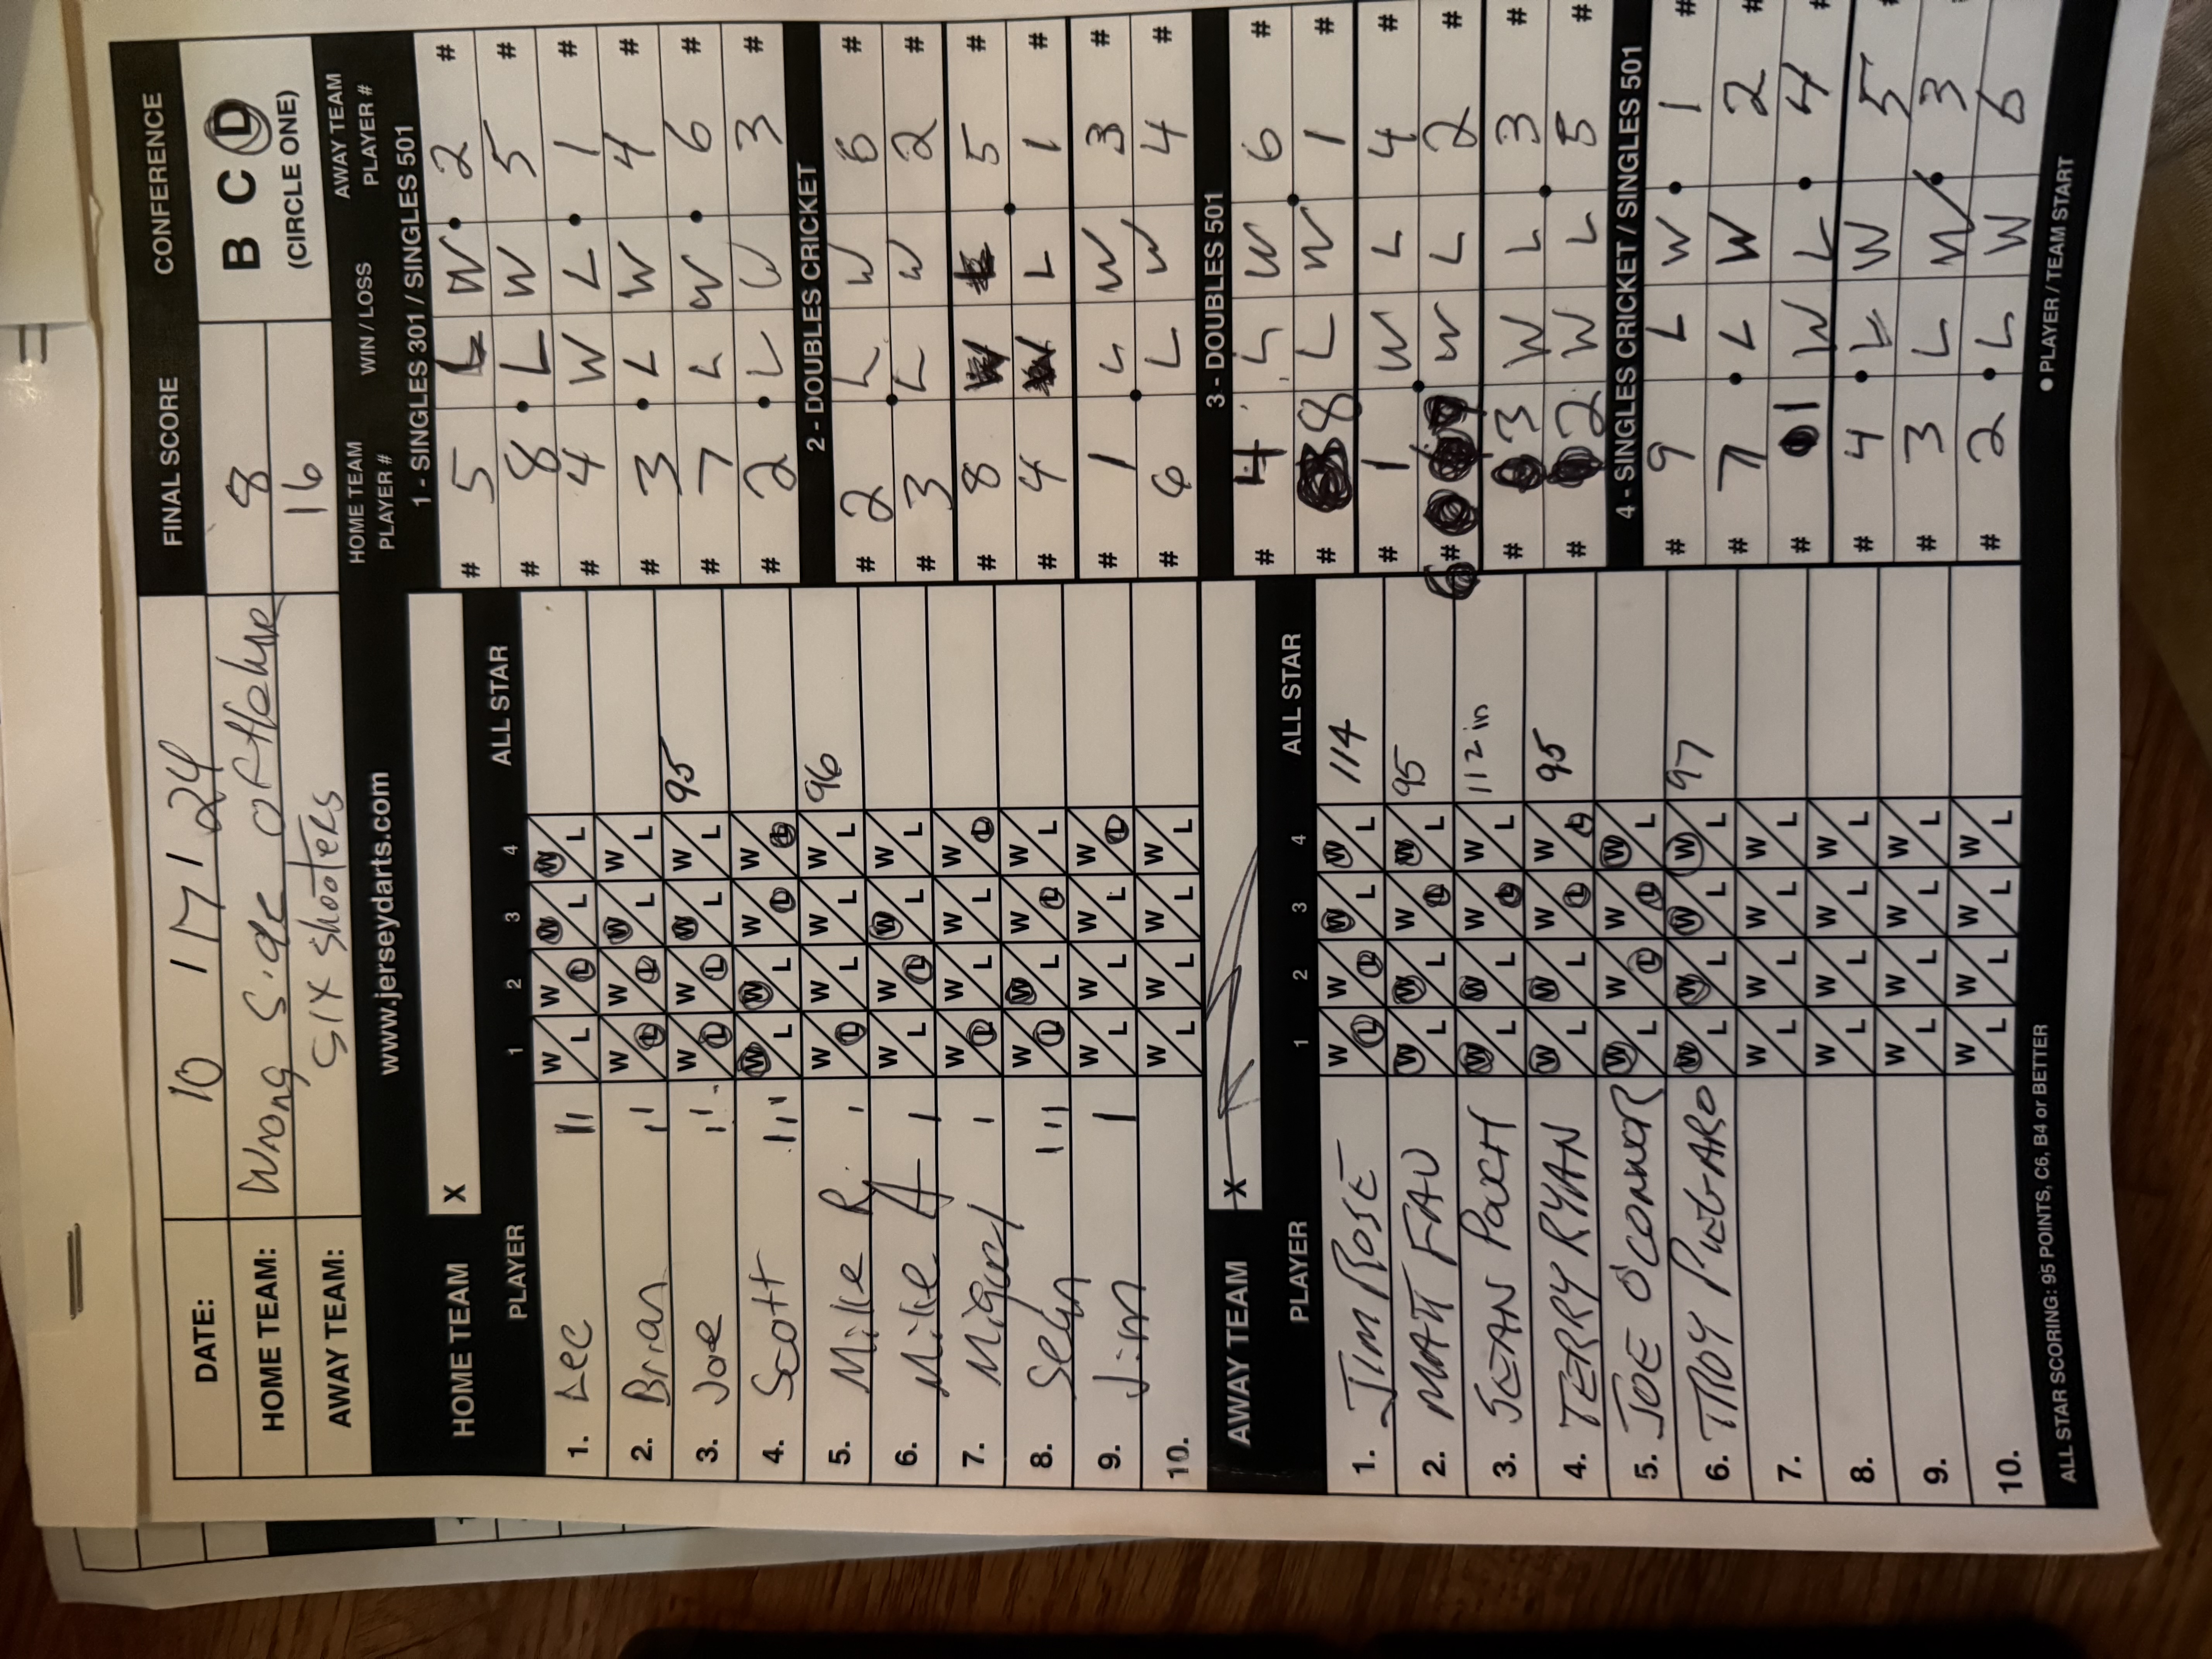 DATE: 10 / 17 / 24 FINAL SCORE CONFERENCE
HOME TEAM: Wrong Side of the Line 8 B C D
AWAY TEAM: SIX SHOOTERS 16 (CIRCLE ONE)
www.jerseydarts.com
HOME TEAM X
PLAYER 1 2 3 4 ALL STAR
1. Lee III W L W L W L W L
2. Brian II W L W L W L W L
3. Joe II W L W L W L W L 95
4. Scott III W L W L W L W L
5. Mike R. I W L W L W L W L 96
6. Mike A I W L W L W L W L
7. Miguel I W L W L W L W L
8. Sean III W L W L W L W L
9. Jim I W L W L W L W L
10. W L W L W L W L
AWAY TEAM X
PLAYER 1 2 3 4 ALL STAR
1. JIM ROSE W L W L W L W L 114
2. MATT FAU W L W L W L W L 95
3. SEAN PACH W L W L W L W L 112 in
4. TERRY RYAN W L W L W L W L 95
5. JOE O'CONNOR W L W L W L W L
6. TROY W L W L W L W L 97
7. W L W L W L W L
8. W L W L W L W L
9. W L W L W L W L
10. W L W L W L W L
HOME TEAM PLAYER # WIN / LOSS AWAY TEAM PLAYER #
1 - SINGLES 301 / SINGLES 501
# 5 L W 2 #
# 8 L W 5 #
# 4 W L 1 #
# 3 L W 4 #
# 7 L W 6 #
# 2 L W 3 #
2 - DOUBLES CRICKET
# 2 L W 6 #
# 3 L W 2 #
# 8 W 5 #
# 4 W L 1 #
# 1 L W 3 #
# 6 L W 4 #
3 - DOUBLES 501
# 4 L W 6 #
# 8 L W 1 #
# 1 W L 4 #
# W L 2 #
# 3 W L 3 #
# 2 W L 5 #
4 - SINGLES CRICKET / SINGLES 501
# 9 L W 1 #
# 7 L W 2 #
# 1 W L 4 #
# 4 L W 5 #
# 3 L W 3
# 2 L W 6
ALL STAR SCORING: 95 POINTS, C6, B4 or BETTER ● PLAYER / TEAM START